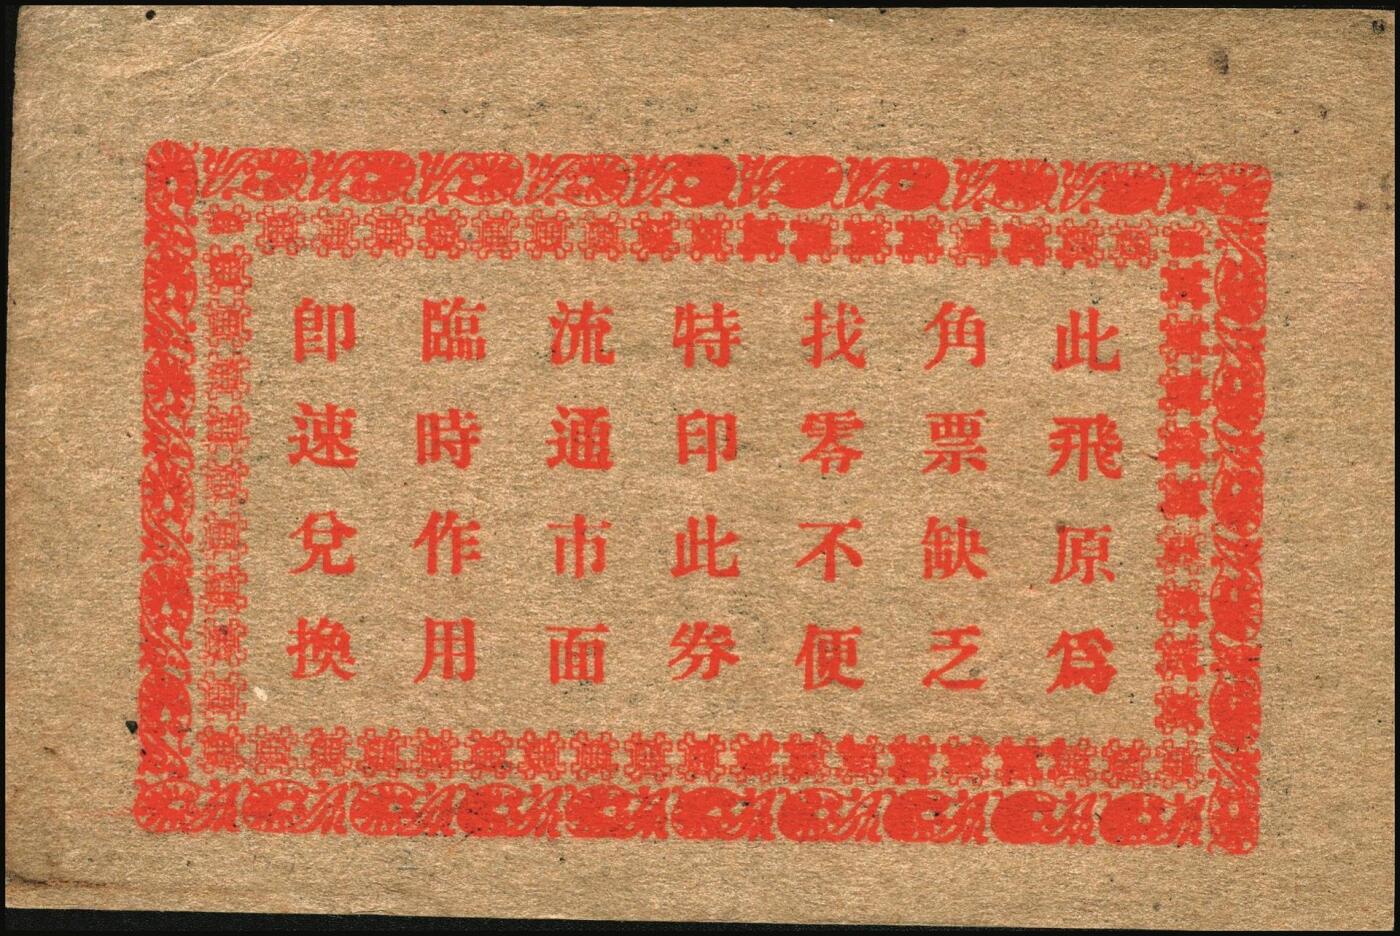 此飛原為
角票缺乏
找零不便
特印此券
流通市面
臨時作用
即速兌換